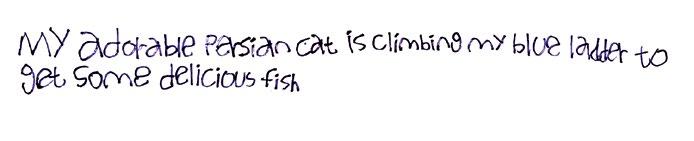 My adorable Persian cat is climbing my blue ladder to
get some delicious fish